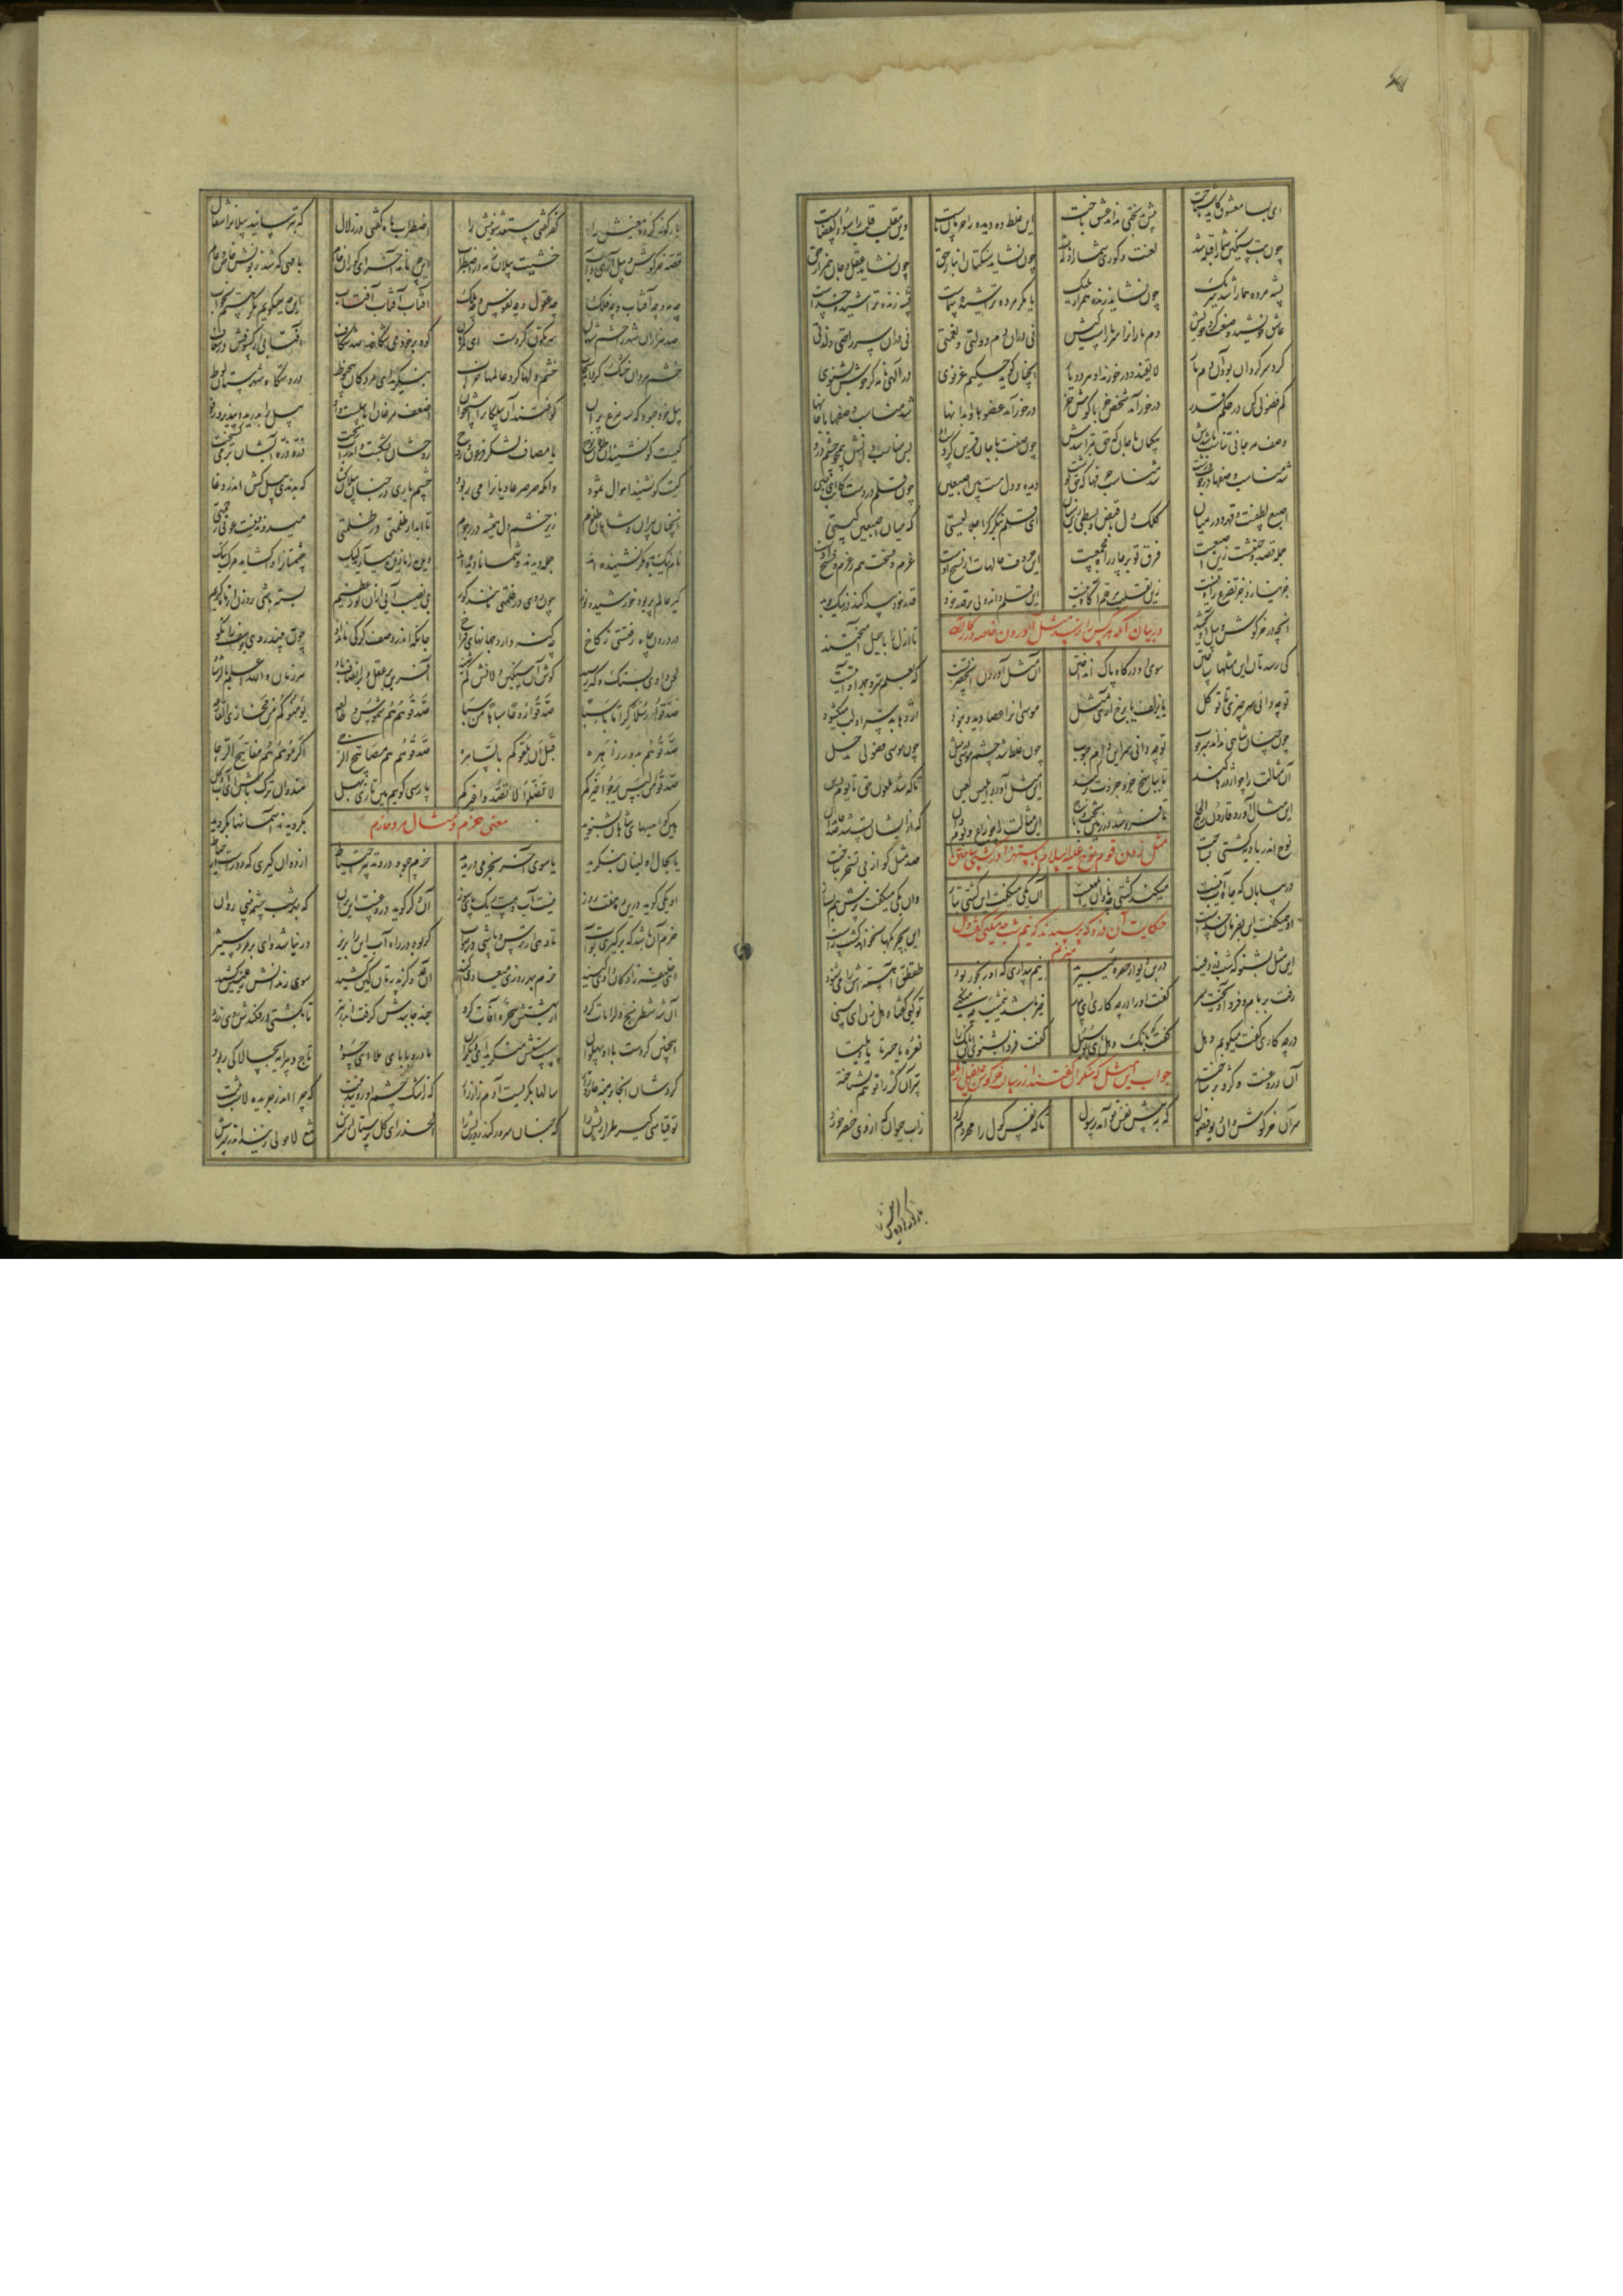 ای بسا معشوق کاید ناشناخت پیش بدبختی نداند عشق باخت این غلط ده دیده را حرمان ماست وین مقلب قلب را سوء القضاست
چون بت سنگین شما را قبله شد لعنت و کوری شما را ظله شد چون نشاید سنگتان انباز حق چون نشاید عقل و جان همراز حق
پشه مرده هما را شد شریک چون نشاید زنده همراز ملیک یا مگر مرده تراشیده شماست پشه زنده تراشیده خداست
عاشق خویشید و صنعت کرد خویش دم ماران را سر مارست کیش نی در آن دم دولتی و نعمتی نی در آن سر راحتی و لذتی
گرد سر گردان بود آن دم مار لایقند و درخورند آن هر دو یار آنچنان گوید حکیم غزنوی در الهی نامه گر خوش بشنوی
کم فضولی کن در حکم قدر درخور آمد شخص خر با گوش خر درخور آمد عضوها و ابدانها شد مناسب وصفها با جانها
وصف هر جانی تناسب باشدش بی گمان با جان که حق بتراشدش چون صفت با جان قرین کردست او پس مناسب دانش همچو چشم و رو
شد مناسب وصفها در خوب و زشت شد مناسب حرفها که حق نوشت دیده و دل هست بین اصبعین چون قلم در دست کاتب ای حسین
اصبع لطفست و قهر و در میان کلک دل با قبض و بسطی زین بنان ای قلم بنگر گر اجلالیستی که میان اصبعین کیستی
جمله قصد و جنبشت زین اصبعست فرق تو بر چارراه مجمعست این حروف حالهات از نسخ اوست عزم و فسخت هم ز عزم و فسخ اوست
جز نیاز و جز تضرع راه نیست زین تقلب هر قلم آگاه نیست این قلم داند ولی بر قدر خود قدر خود پیدا کند در نیک و بد
آنچه در خرگوش و پیل آویختند تا ازل را با حیل آمیختند
در بیان آنکه هر کس را نرسد مثل آوردن خاصه در کار الهی
کی رسدتان این مثلها ساختن سوی آن درگاه پاک انداختن آن مثل آوردن آن حضرتست که بعلم سر و جهر او آیتست
تو چه دانی سر چیزی تا تو کل یا بزلف یا برخ آری مثل موسی آنرا عصا دید و نبود اژدها بد سر او لب میگشود
چون چنان شاهی نداند سر چوب تو چه دانی سر این دام و حبوب چون غلط شد چشم موسی در مثل چون کند موشی فضولی مدخل
آن مثالت را چو اژدرها کند تا بپاسخ جزو جزوت بر کند این مثل آورد ابلیس لعین تا که شد ملعون حق تا یوم دین
این مثال آورد قارون از لجاج تا فرو شد در زمین با تخت و تاج این مثالت را چو زاغ و بوم دان که ازیشان پست شد صد خاندان
مثل زدن قوم نوح علیه السلام باستهزا در کشتی ساختن
نوح اندر بادیه کشتی بساخت صد مثل گو از پی تسخر بتاخت
در بیابانی که چاه آب نیست میکند کشتی چه نادان ابلهیست آن یکی میگفت ای کشتی بتاز وان یکی میگفت پرش هم بساز
او همیگفت این بفرمان خداست این بچربکها نخواهد گشت راست
حکایت آن دزد که پرسیدند که نیم شب چه میکنی گفت دهل
میزنم
این مثل بشنو که شب دزدی عنید در بن دیوار حفره میبرید نیم بیداری که او رنجور بود طقطق آهسته اش را میشنود
رفت بر بام و فرو آویخت سر گفت او را در چه کاری ای پدر خیر باشد نیمشب چه میکنی تو کیی گفتا دهل زن ای سنی
در چه کاری گفت میکوبم دهل گفت کو بانگ دهل ای بوسبل گفت فردا بشنوی این بانگ را نعره یا حسرتا یا ویلتا
آن دروغست و کژ و بر ساخته سر آن کژ را تو هم نشناخته
جواب آن مثل که منکران گفتند از رسالت خرگوش
سر آن خرگوش دان دیو فضول که به پیش نفس تو آمد رسول تا که نفس گول را محروم کرد ز آب حیوانی که از وی خضر خورد
باژگونه کرده معنیش را کفر گفتی مستعد شو نیش را اضطراب ماه گفتی در زلال که بترسانید پیلان را شغال
قصه خرگوش و پیل آری و آب خشیت پیلان ز مه در اضطراب این چه ماند آخر ای کوران خام با مهی که شد زبونش خاص و عام
چه مه و چه آفتاب و چه فلک چه عقول و چه نفوس و چه ملک آفتاب آفتاب آفتاب این چه میگویم مگر هستم بخواب
صد هزاران شهر را خشم شهان سرنگون کردست ای بد گمرهان کوه بر خود می شکافد صد شکاف آفتابی از کسوفش در طواف
خشم مردان خشک گرداند سحاب خشم دلها کرد عالمها خراب بنگرید ای مردگان بی حنوط در سیاستگاه شهرستان لوط
پیل خود چه بود که سه مرغ پران کوفتند آن پیلکان را استخوان اضعف مرغان ابابیلست و او پیل را بدرید و نپذیرد رفو
کیست کو نشنید آن طوفان نوح یا مصاف لشکر فرعون و روح روحشان بشکست و اندر آب ریخت ذره ذره آبشان بر میگسیخت
کیست کو نشنید احوال ثمود وانکه صرصر عادیان را می ربود چشم باری در چنان پیلان گشا که بدندی پیل کش اندر وغا
آنچنان پیلان و شاهان ظلوم زیر خشم دل همیشه در رجوم تا ابد از ظلمتی در ظلمتی میروند و نیست غوثی رحمتی
نام نیک و بد مگر نشنیده اید جمله دیدند و شما نادیده اید دیده را نادیده می آرید لیک چشمتان را وا گشاید مرگ نیک
گیر عالم پر بود خورشید و نور چون روی در ظلمتی مانند گور بی نصیب آیی از آن نور عظیم بسته روزن باشی از ماه کریم
تو درون چاه رفتستی ز کاخ چه گنه دارد جهانهای فراخ جان که اندر وصف گرگی ماند او چون ببیند روی یوسف را بگو
لحن داودی بسنگ و که رسید گوش آن سنگین دلانش کم شنید آفرین بر عقل و بر انصاف باد هر زمان والله اعلم بالرشاد
صدقوا رسلا کراما یا سبا صدقوا روحا سباها من سبا صدقوهم هم شموس طالعه یؤمنوکم من مخازی القارعه
صدقوهم هم بدور زاهره قبل ان یلقوکم بالساهره صدقوهم هم مصابیح الدجی اکرموهم هم مفاتیح الرجا
صدقوا من لیس یرجو خیرکم لا تضلوا لا تصدوا غیرکم پارسی گوییم هین تازی بهل هندوی آن ترک باش ای آب و گل
هین گواهیهای شاهان بشنوید بگرویدند آسمانها بگروید
معنی حزم و مثال مرد حازم
یا بحال اولینان بنگرید یا سوی آخر بحزمی در پرید حزم چه بود در دو تدبیر احتیاط از دو آن گیری که دورست از خباط
آن یکی گوید درین ره هفت روز نیست آب و هست ریگ پای سوز آن دگر گوید دروغست این بران که بهر شب چشمه بینی روان
حزم آن باشد که برگیری تو آب تا رهی از ترس و باشی بر صواب گر بود در راه آب این را بریز ور نباشد وای بر مرد ستیز
ای خلیفه زادگان دادی کنید حزم بهر روز میعادی کنید آن عدوی کز پدرتان کین کشید سوی زندانش ز علیین کشید
آن شه شطرنج دل را مات کرد از بهشتش سخره آفات کرد چند جا بندش گرفت اندر نبرد تا بکشتی در فکندش روی زرد
اینچنین کردست با آن پهلوان سست سستش منگرید ای دیگران مادر و بابای ما را آن حسود تاج و پیرایه بچالاکی ربود
کردشان آنجا برهنه و زار و خوار سالها بگریست آدم زار زار که ز اشک چشم او رویید نبت که چرا اندر جریده لاست ثبت
تو قیاسی گیر طراریش را که چنان سرور کند زو ریش را الحذر ای گل پرستان از شرش تیغ لا حولی زنید اندر سرش